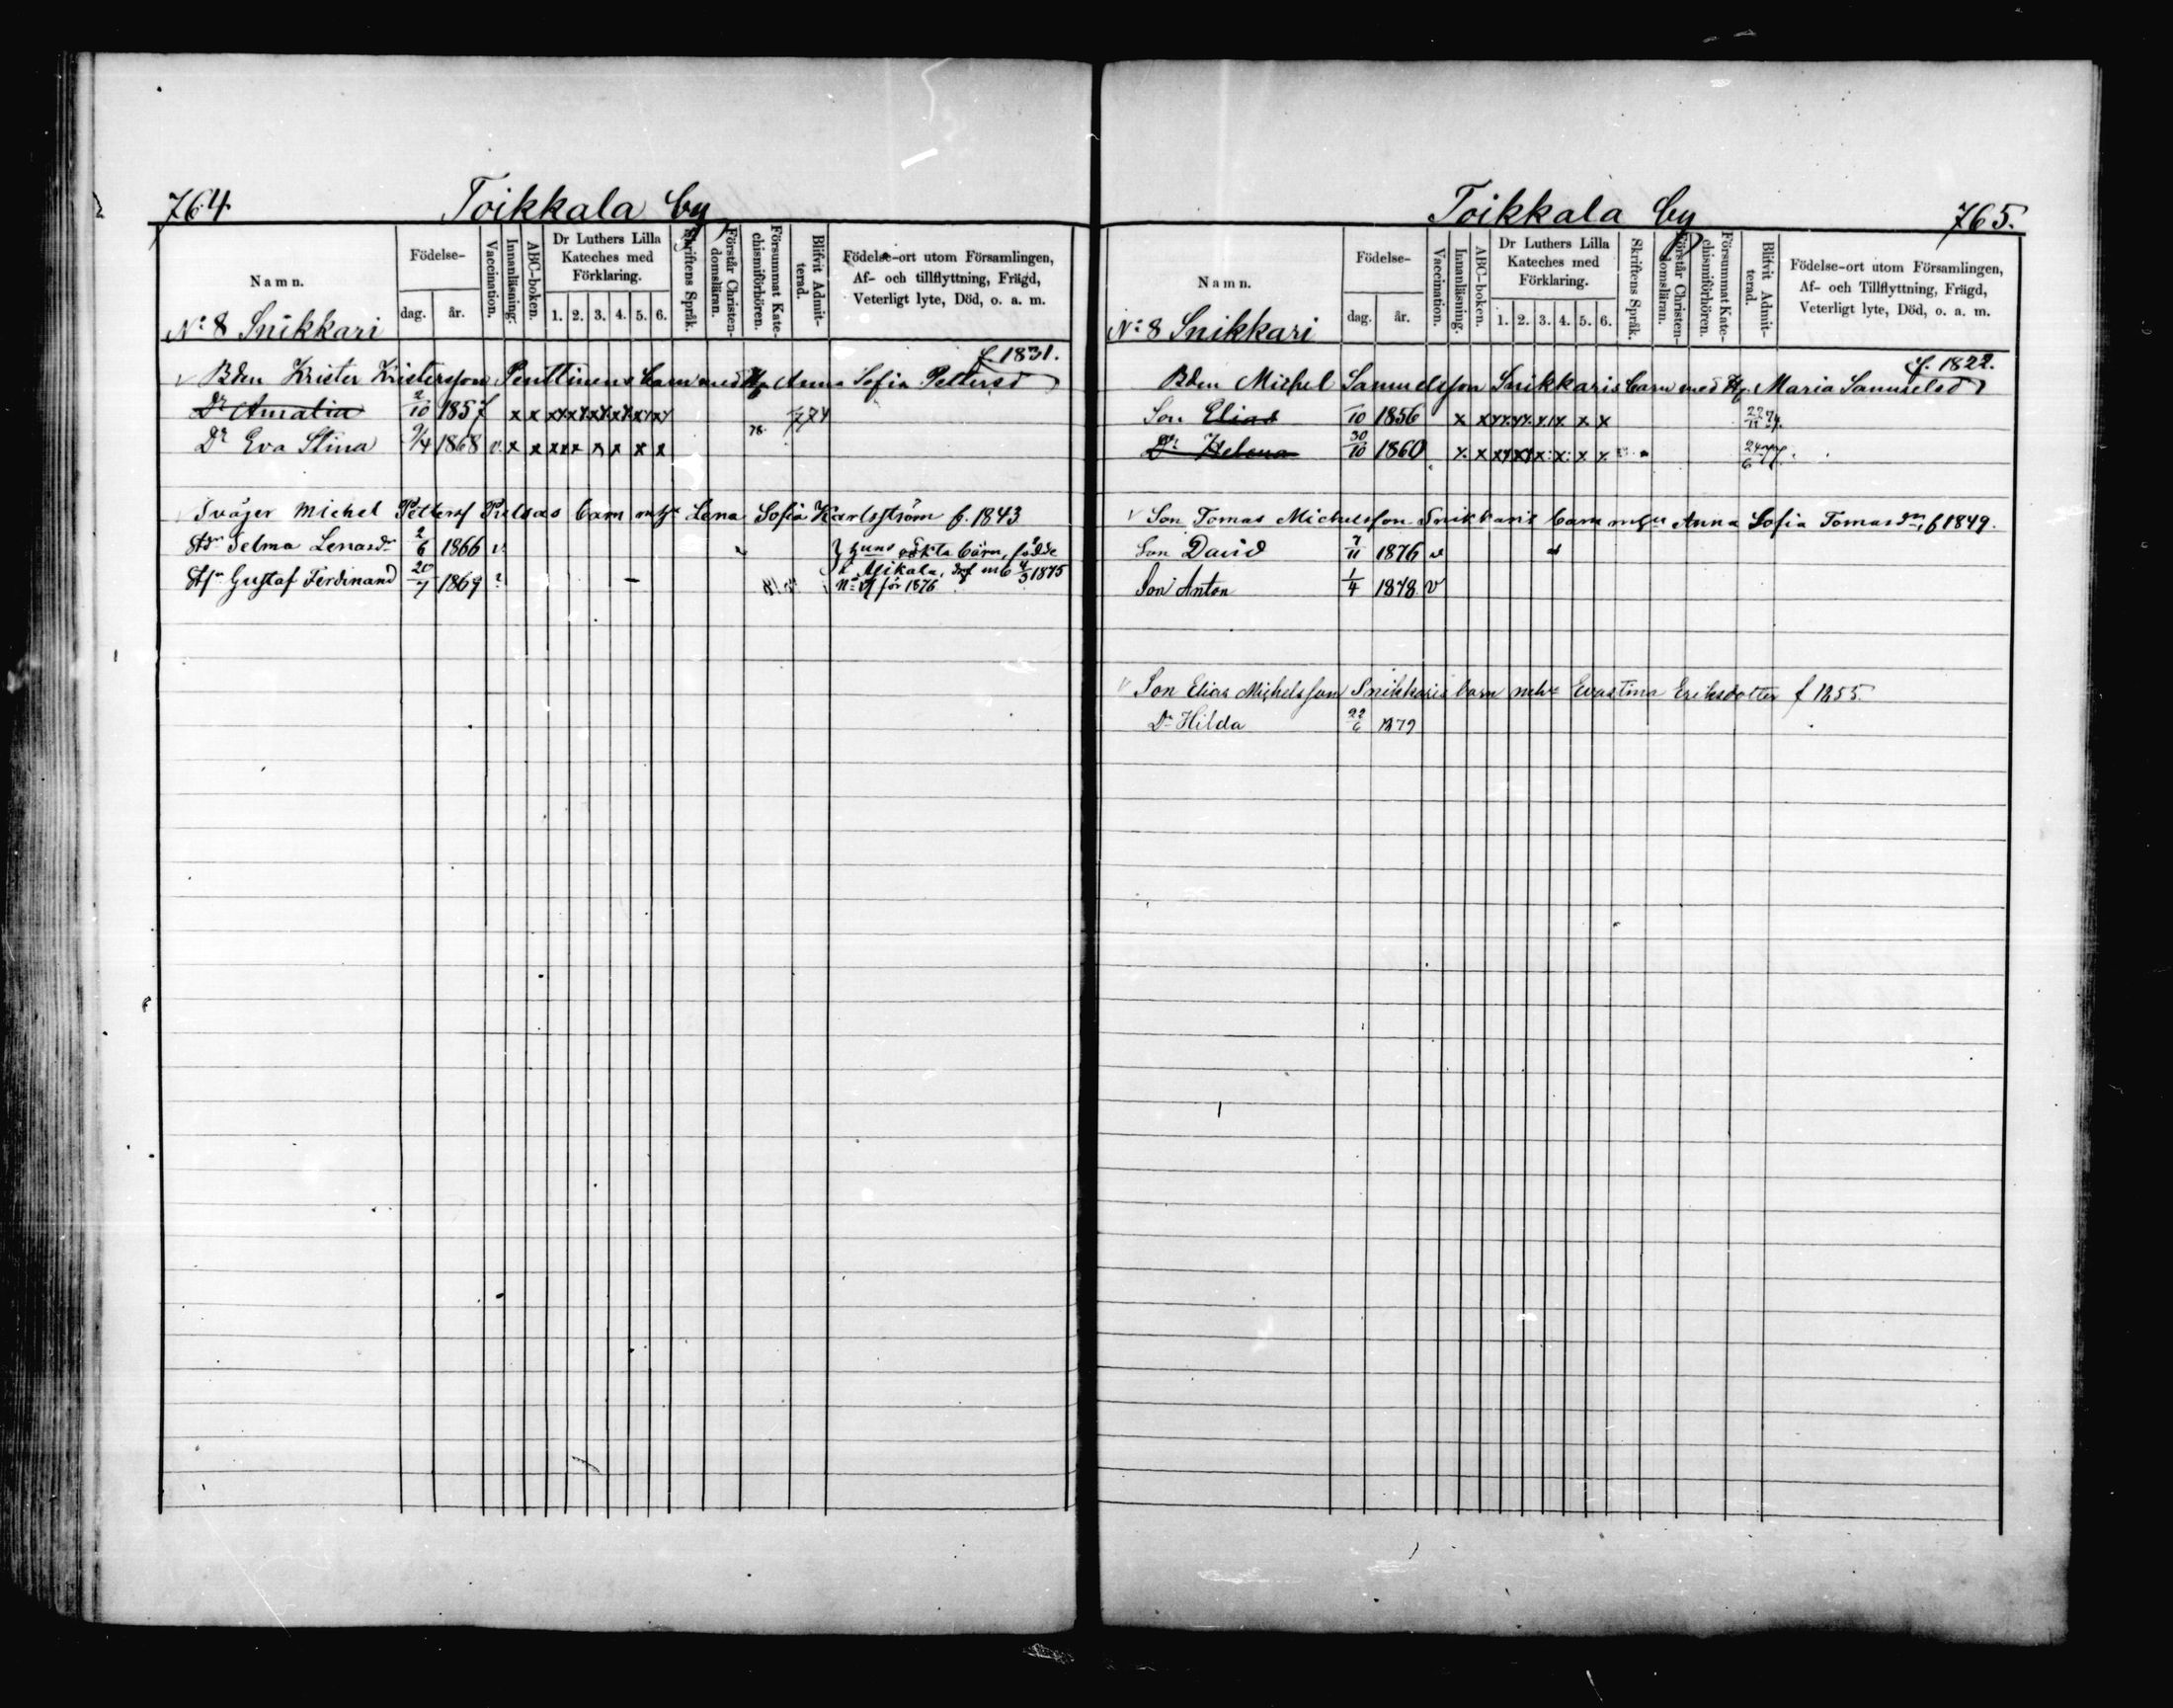 764 Toikkala by
Namn.
Födelse-
dag. år.
Vaccination.
Innanläsning.
ABC-boken.
Dr Luthers Lilla Kateches med Förklaring.
1. 2. 3. 4. 5. 6.
Skriftens Språk.
Förstår Christendomsläran.
Försummat Katechismiförhören.
Blifvit Admitterad.
Födelse-ort utom Församlingen, Af- och tillflyttning, Frägd, Veterligt lyte, Död, o. a. m.
N:o 8 Snikkari
f. 1831.
v Bden Krister Kristersson Penttinens barn med Hu Anna Sofia Pettersd
Dr Amalia 2/10 1857 x x x x x x x x 74
Dr Eva Stina 9/4 1868 v. x x x x x x x x 78.
v Svåger Michel Petterss barn m hu Lena Sofia Karlsström f. 1843
Lenasdr Selma 2/6 1866 v hans oäkta barn, födde
Gustaf Ferdinand 20/7 1869 ? – i Mikkla, m b 4/3 1875
N:o för 1876
Toikkala by 765.
Namn.
Födelse-
dag. år.
Vaccination.
Innanläsning.
ABC-boken.
Dr Luthers Lilla Kateches med Förklaring.
1. 2. 3. 4. 5. 6.
Skriftens Språk.
Förstår Christendomsläran.
Försummat Katechismiförhören.
Blifvit Admitterad.
Födelse-ort utom Församlingen, Af- och Tillflyttning, Frägd, Veterligt lyte, Död, o. a. m.
N:o 8 Snikkari
f. 1822.
Bden Michel Samuelsson Snikkaris barn med Hu Maria Samuelsd
Son Elias /10 1856 x x x x x x x x 22/11 74.
Dr Helena 30/10 1860 x x x x x x x x 24/6 77.
v Son Tomas Michelsson Snikkaris barn m hu Anna Sofia Tomasdr, f 1849.
Son David 7/11 1876 v
Son Anton 1/4 1878 v
v Son Elias Michelsson Snikkaris barn m hu Evastina Eriksdotter f 1855.
Dr Hilda 22/6 1879